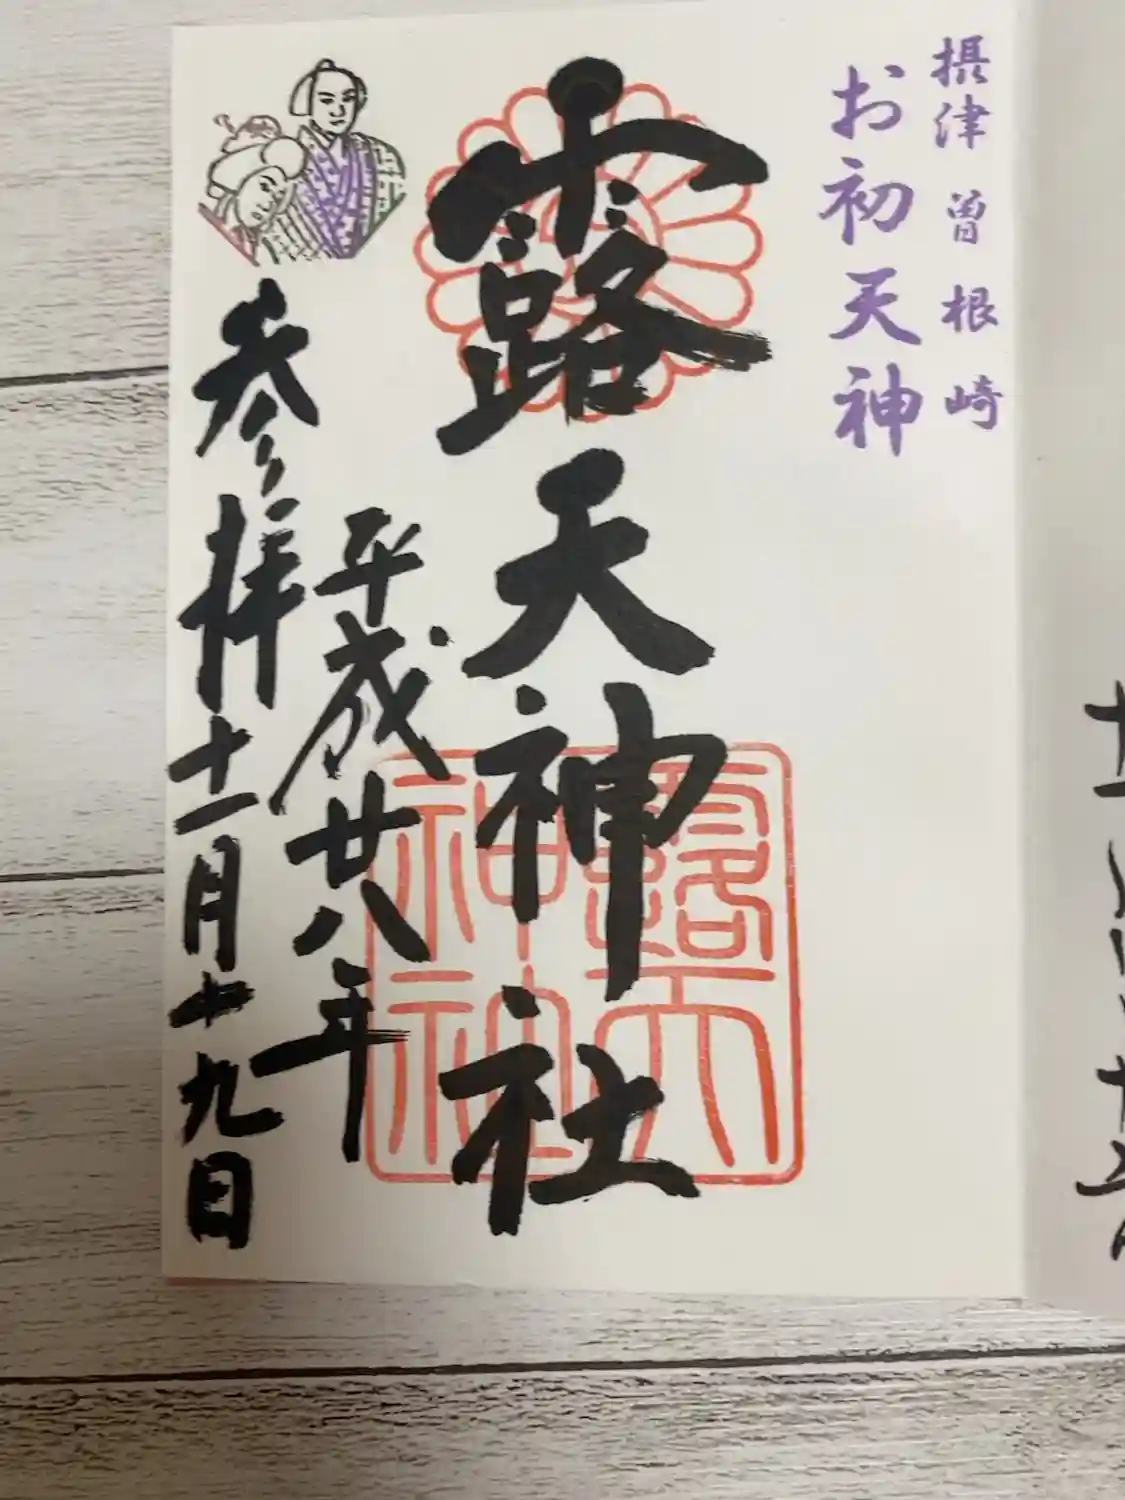 摂津 曽根崎
お初天神
露天神社
平成廿八年
参拝十一月十九日
露天
神社